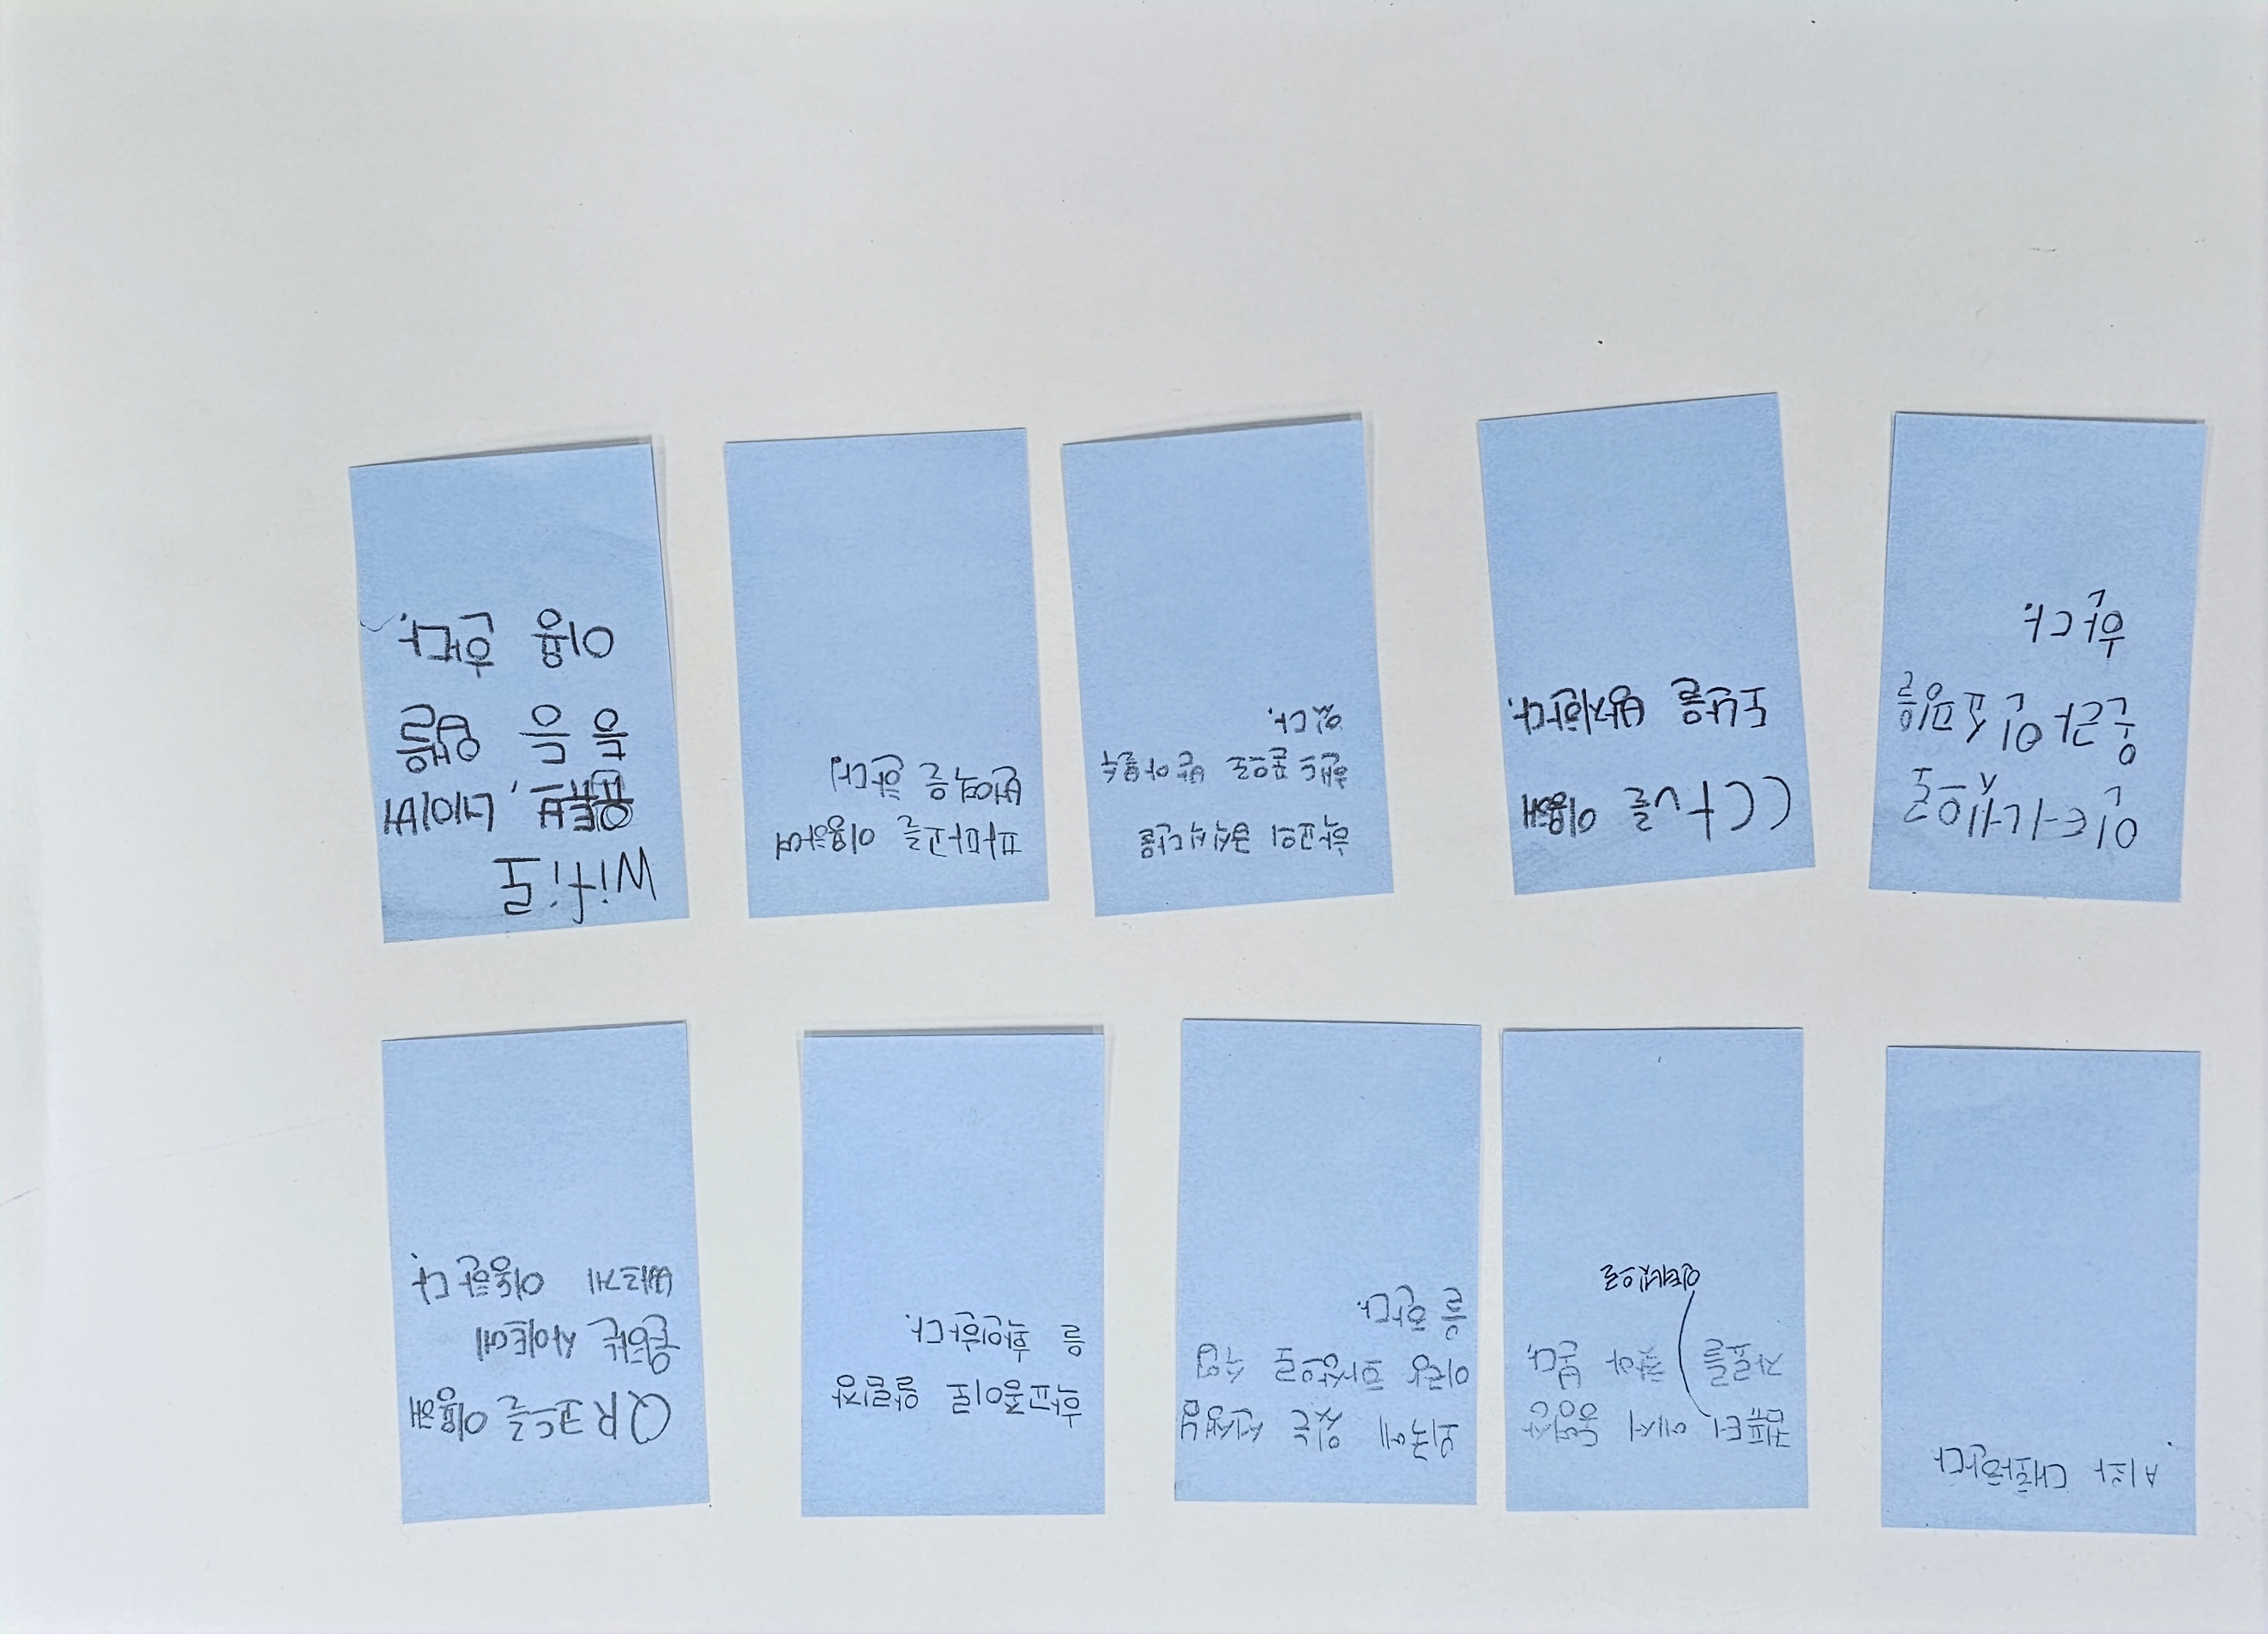 AI와 대화한다
컴퓨터 에서 동영상
자료를 찾아 본다.
인터넷으로
외국에 있는 선생님
이랑 화상으로 수업
을 한다.
학교종이로 알림장
을 확인한다.
QR코드를 이용해
원하는 사이트에
빠르게 이동한다.
인터넷으로
온라인쇼핑을
한다.
CCtv를 이용해
도난을 방지한다.
학교의 급식식단을
핸드폰으로 받아볼수
있다.
파파고를 이용하여
번역을 한다.
wifi로
유튜브, 네이버
등등 앱을
이용 한다.